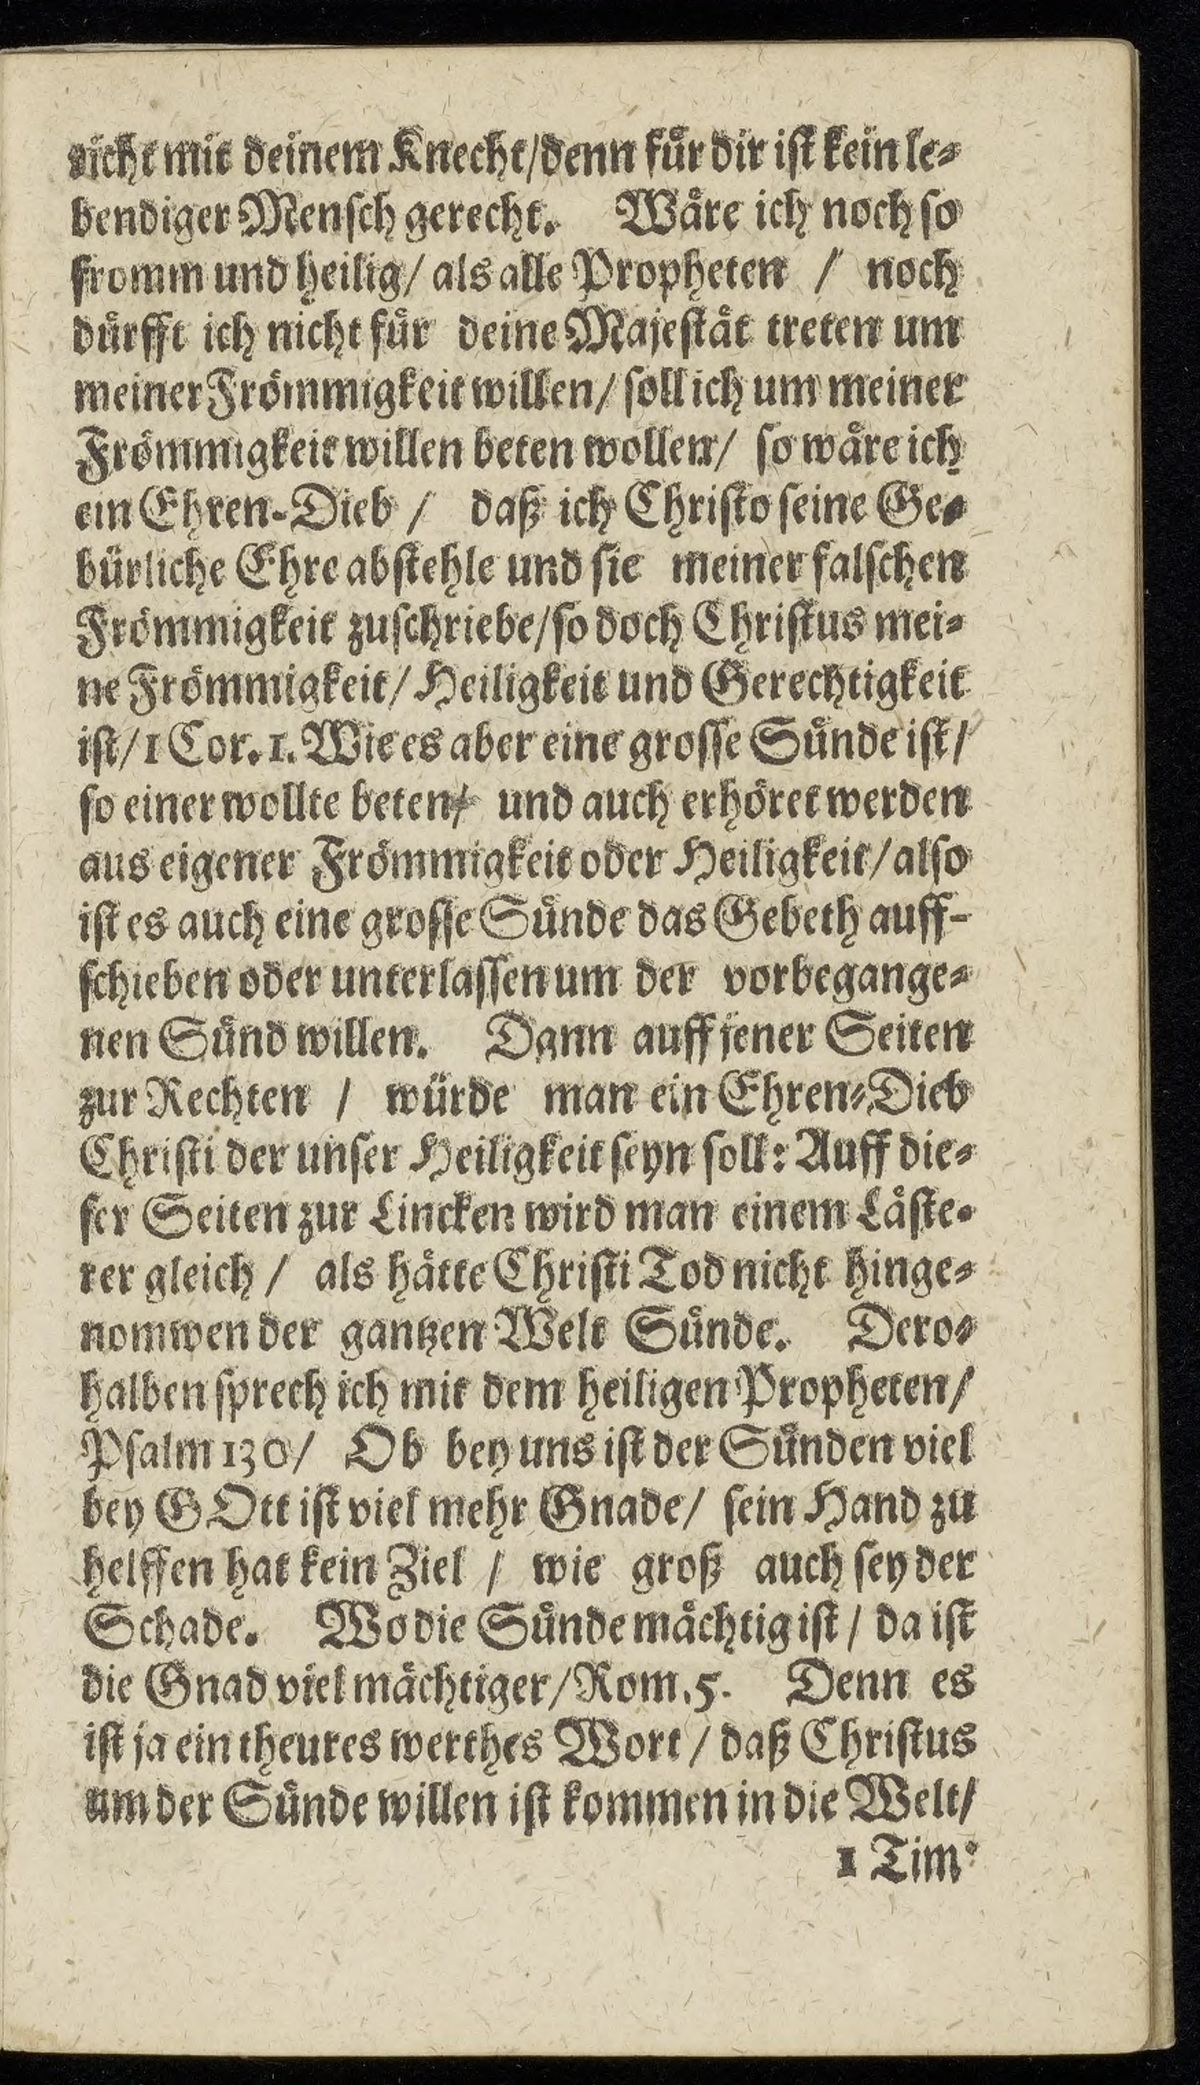 nicht mit deinem Knecht/denn für dir ist kein le-
bendiger Mensch gerecht. Wäre ich noch so
fromm und heilig/ als alle Propheten / noch
dürfft ich nicht für deine Majestät treten um
meiner Frömmigkeit willen/ soll ich um meiner
Frömmigkeit willen beten wollen/ so wäre ich
ein Ehren-Dieb / daß ich Christo seine Ge-
bürliche Ehre abstehle und sie meiner falschen
Frömmigkeit zuschriebe/so doch Christus mei-
ne Frömmigkeit/ Heiligkeit und Gerechtigkeit
ist/1 Cor. 1. Wie es aber eine grosse Sünde ist/
so einer wollte beten/ und auch erhöret werden
aus eigener Frömmigkeit oder Heiligkeit/also
ist es auch eine grosse Sünde das Gebeth auff-
schieben oder unterlassen um der vorbegange-
nen Sünd willen. Dann auff jener Seiten
zur Rechten / würde man ein Ehren-Dieb
Christi der unser Heiligkeit seyn soll: Auff die-
ser Seiten zur Lincken wird man einem Läste-
rer gleich / als hätte Christi Tod nicht hinge-
nomwen der gantzen Welt Sünde. Dero-
halben sprech ich mit dem heiligen Propheten/
Psalm 130/ Ob bey uns ist der Sünden viel
bey GOtt ist viel mehr Gnade/ sein Hand zu
helffen hat kein Ziel / wie groß auch sey der
Schade. Wo die Sünde mächtig ist / da ist
die Gnad viel mächtiger/Rom. 5. Denn es
ist ja ein theures werthes Wort / daß Christus
um der Sünde willen ist kommen in die Welt/
1 Tim.